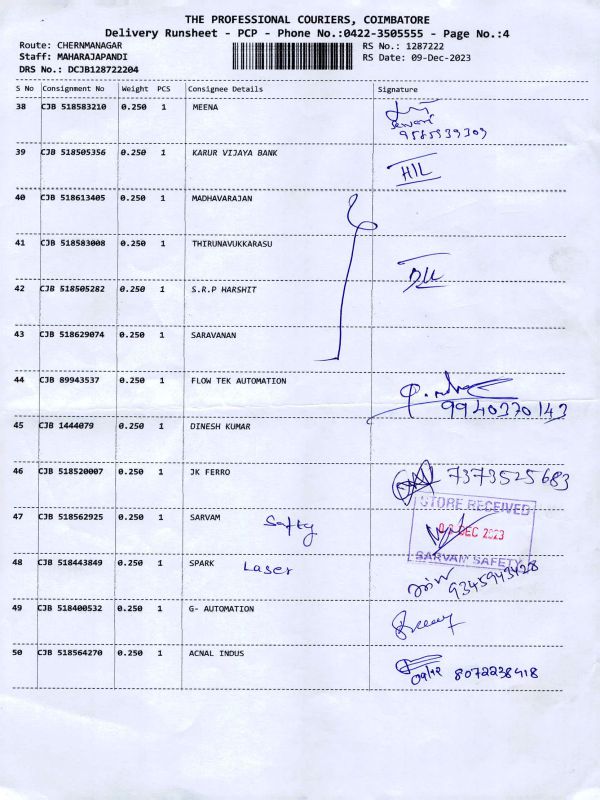 THE PROFESSIONAL COURIERS, COIMBATORE
Delivery Runsheet - PCP - Phone No.:0422-3505555 - Page No.:4
Route: CHERNMANAGAR RS No.: 1287222
Staff: MAHARAJAPANDI RS Date: 09-Dec-2023
DRS No.: DCJB128722204
S No Consignment No Weight PCS Consignee Details Signature
38 CJB 518583210 0.250 1 MEENA
9585939309
39 CJB 518505356 0.250 1 KARUR VIJAYA BANK
HIL
40 CJB 518613405 0.250 1 MADHAVARAJAN
41 CJB 518583008 0.250 1 THIRUNAVUKKARASU
42 CJB 518505282 0.250 1 S.R.P HARSHIT
43 CJB 518629074 0.250 1 SARAVANAN
44 CJB 89943537 0.250 1 FLOW TEK AUTOMATION
9940370143
45 CJB 1444079 0.250 1 DINESH KUMAR
46 CJB 518520007 0.250 1 JK FERRO 7373525683
STORE RECEIVED
47 CJB 518562925 0.250 1 SARVAM Safty
DEC 2023
SARVAM SAFETY
48 CJB 518443849 0.250 1 SPARK Laser
9345943428
49 CJB 518400532 0.250 1 G- AUTOMATION
50 CJB 518564270 0.250 1 ACNAL INDUS
8072238418